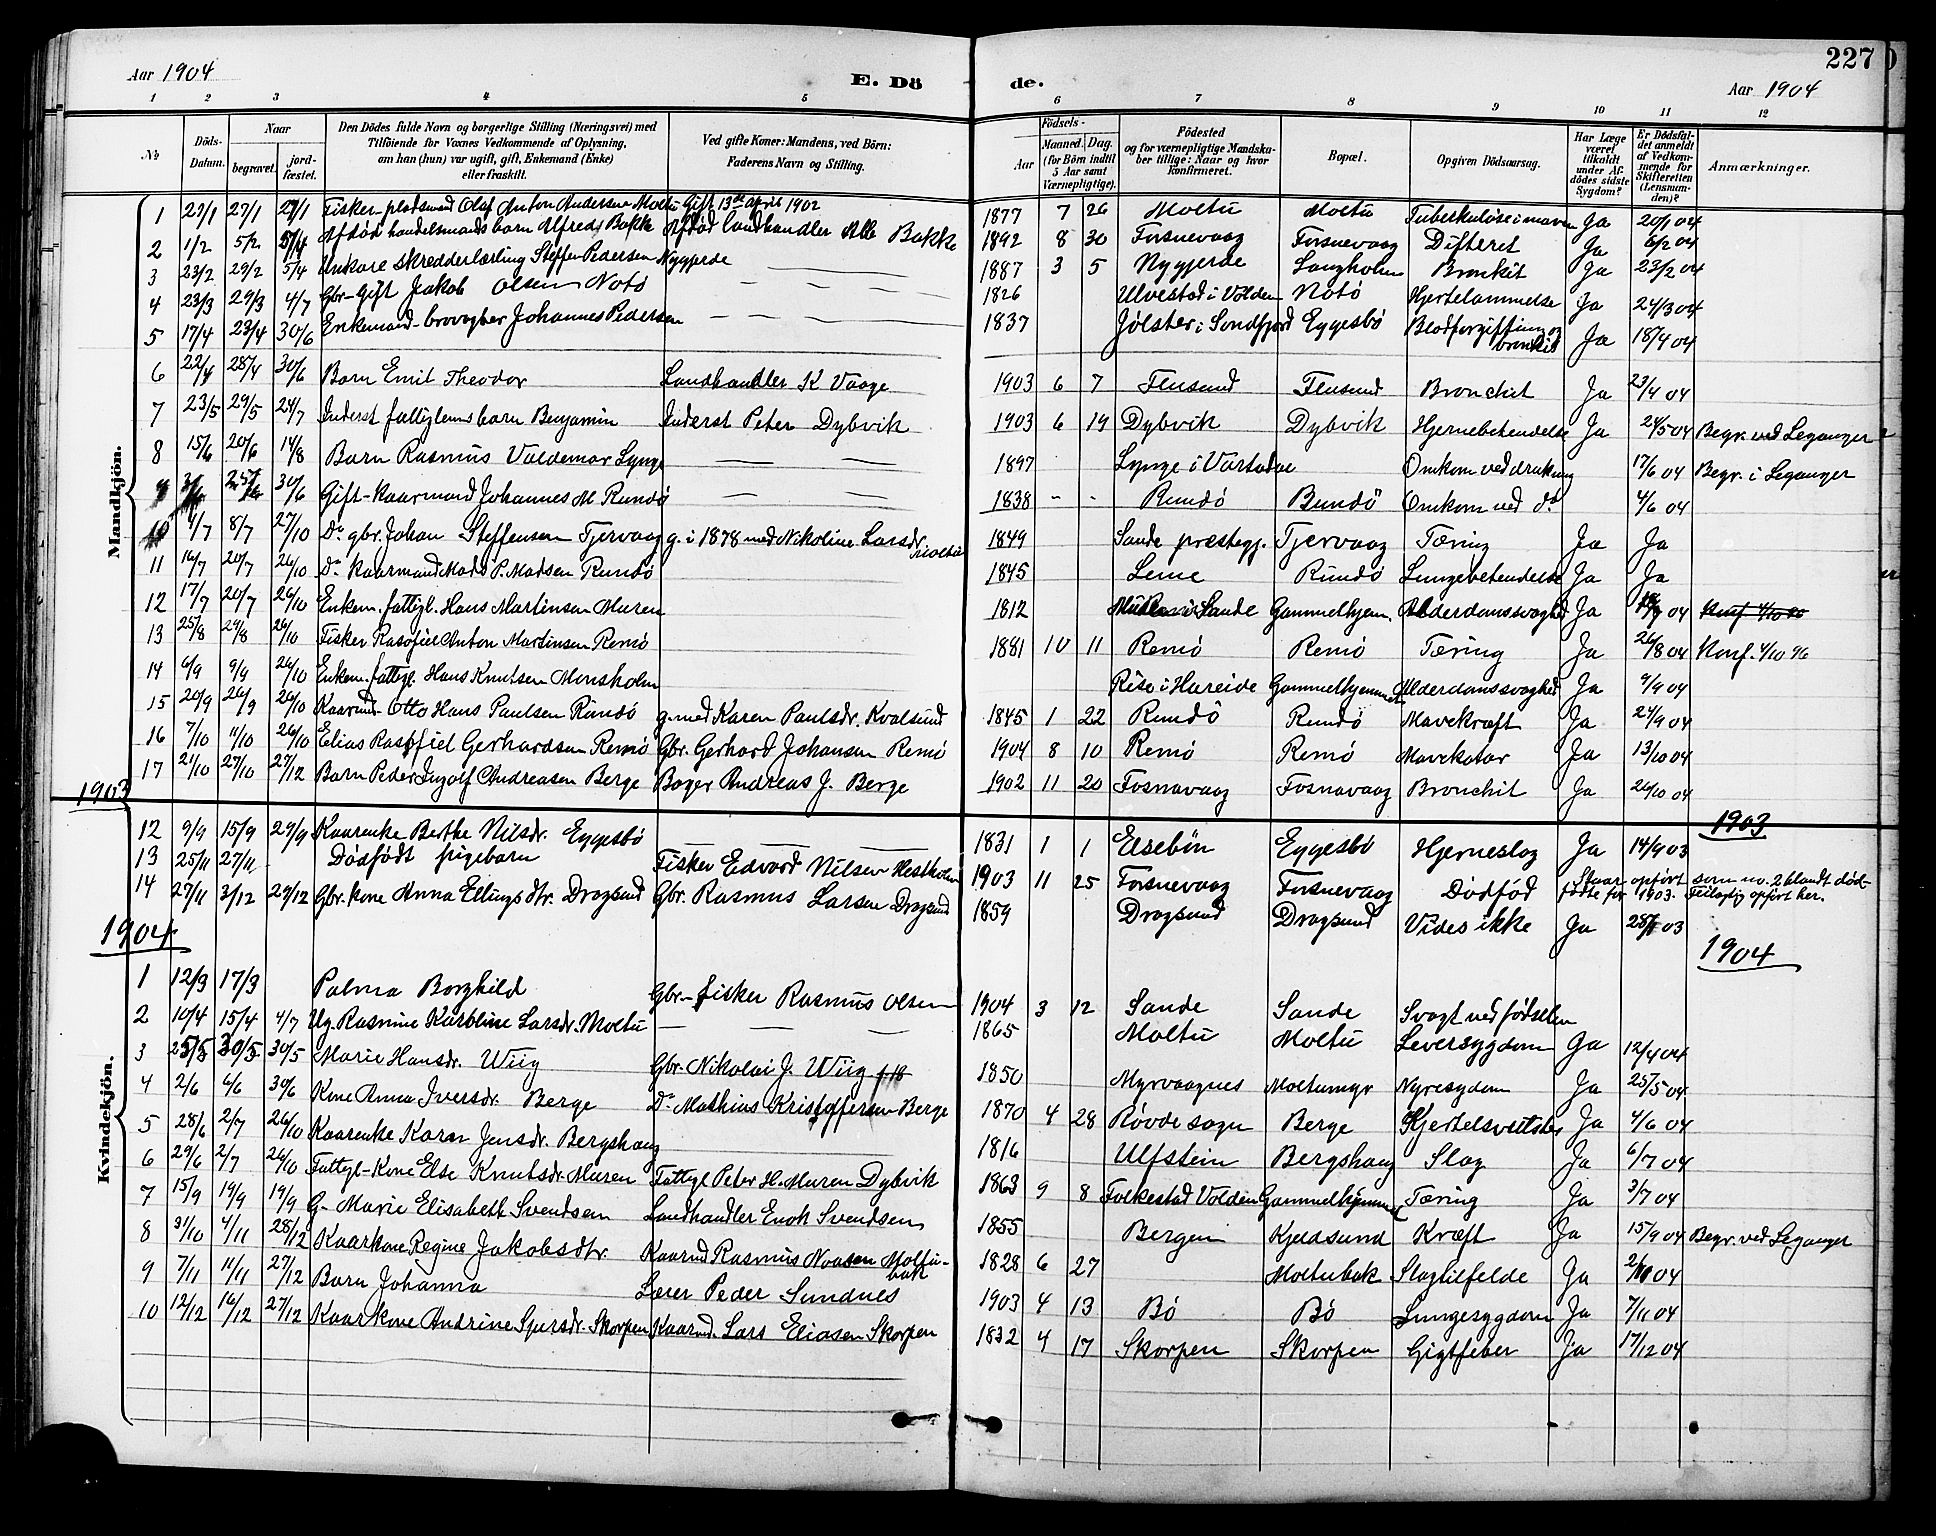 Aar 1904
E. Dö de.
227
Aar 1904
1 2 3 4 5 6 7 8 9 10 11 12
No
Döds-Datum.
Naar
begravet.
jord-fæstet.
Den Dödes fulde Navn og borgerlige Stilling (Næringsvei) med
Tilföiende for Voxnes Vedkommende af Oplysning,
om han (hun) var ugift, gift, Enkemand (Enke)
eller fraskilt.
Ved gifte Koner: Mandens, ved Börn:
Faderens Navn og Stilling.
Födsels-
Aar
Maaned. Dag.
(for Börn indtil
5 Aar samt
Værnepligtige).
Födested
og for værnepligtige Mandska-
ber tillige: Naar og hvor
konfirmeret.
Bopæl.
Opgiven Dödsaarsag.
Har Læge
været
tilkaldt
under Af-
dödes sidste
Sygdom?
Er Dödsfal-
det anmeldt
af Vedkom-
mende for
Skifteretten
(Lensman-
den)?
Anmærkninger.
Mandkjön.
1 22/1 27/1 27/1 Fisker pladsmand Olaf Anton Andersen Moltu Gift 13de april 1902 1877 7 26 Moltu Moltu Tuberkuløse i maven Ja 20/1 04
2 1/2 5/2 5/4 Afdød handelsmands barn Alfred Bakke Afdød landhandler Bakke 1892 8 30 Fosnevaag Fosnevaag Difterit Ja 6/2 04
3 23/2 29/2 5/4 Unkare skredderlærling Steffen Pedersen Nygjerde — — — 1887 3 5 Nygjerde Langholm Bronkit Ja 23/2 04
4 23/3 29/3 4/7 Gbr-Gift Jakob Olsen Notø — — — 1826 Ulvestad i Volden Notø Hjertelammelse Ja 24/3 04
5 17/4 23/4 30/6 Enkemand-brovagter Johannes Pedersen — — — 1837 Jølster i Søndfjord Eggesbø Blodforgiftning og bronkit Ja 18/4 04
6 22/4 28/4 30/6 Barn Emil Theodor Landhandler K Vaage 1903 6 7 Flusund Flusund Bronchit Ja 23/4 04
7 23/5 29/5 24/7 Inderst fattiglems barn Benjamin Inderst Peter Dybvik 1903 6 19 Dybvik Dybvik Hjernebetendelse Ja 24/5 04 Begr. ved Leganger
8 15/6 20/6 14/8 Barn Rasmus Valdemar Lynge — — — 1897 Lynge i Vartdal Omkom ved drukning 17/6 04 Begr. i Leganger
9 30/6 Gift-kaarmand Johannes M. Rundø — — 1838 - - Rundø Rundø Omkom ved do 4/6 04
10 4/7 8/7 27/10 Do gbr. Johan Steffensen Tjervaag g. i 1878 med Nikoline Larsdr. Moltu 1849 Sande præstegj. Tjervaag Tæring Ja Ja
11 16/7 20/7 26/10 Do Kaarmand Mads P. Madsen Rundø 1845 Leine Rundø Lungebetendelse Ja Ja
12 17/7 20/7 26/10 Enkem. fattigl. Hans Martinsen Muren 1812 Sande Gammelhjem. Alderdomssvaghed Ja 04
13 25/8 29/8 26/10 Fisker Rasofiel Anton Martinsen Remø 1881 10 11 Remø Remø Tæring Ja 26/8 04 Konf. 4/10 96
14 6/9 9/9 26/10 Enkem. fattigl. Hans Knutsen Monsholm Riise i Hareide Gammelhjemmet Alderdomssvaghed Ja 9/9 04
15 20/9 26/9 26/10 Kaarmd- Otto Hans Paulsen Rundø g. med Karen Paulsdr. Kvalsund 1845 1 22 Rundø Rundø Mavekræft Ja 24/9 04
16 7/10 11/10 26/10 Elias Rasofiel Gerhardsen Remø Gbr. Gerhard Johansen Remø 1904 8 10 Remø Remø Mavekatar Ja 13/10 04
17 21/10 27/10 27/12 Barn Peder Ingolf Andreasen Berge Bager Andreas J. Berge 1902 11 20 Fosnavaag Fosnavaag Bronchit Ja 26/10 04
1903
1903
Kvindekjön.
12 9/9 15/9 29/9 Kaarenke Berthe Nilsdr. Eggesbø — — — 1831 1 1 Elsebøn Eggesbø Hjerneslag Ja 14/9 03
13 25/11 27/11 Dødfødt pigebarn Fisker Edvard Nilsen Hestholm 1903 11 25 Fosnevaag Fosnevaag Dødfød Staar opført som no. 2 blandt død-
fødte for 1903. Feilagtig opført her.
14 27/11 3/12 29/12 Gbr. kone Anna Ellings dtr. Dragsund Gbr. Rasmus Larsen Dragsund 1859 Dragsund Dragsund Vides ikke Ja 28/11 03
1904
1904
1 12/3 17/3 Palma Borghild Gbr-fisker Rasmus Olsen 1904 3 12 Sande Sande Svagt ved fødselen
2 10/4 15/4 4/7 Ug. Rasmine Karoline Larsdr. Moltu — — — 1865 Moltu Moltu Leversygdom Ja 12/4 04
3 25/5 30/5 30/5 Marie Hansdr. Wiig Gbr. Nikolai J. Wiig 1850 Myrvaagnes Moltumyr Nyresygdom Ja 25/5 04
4 2/6 6/6 30/6 Kone Anna Iversdr. Berge Do Mathias Kristoffersen Berge 1870 4 28 Røvde sogn Berge Kjertelsvulster Ja 4/6 04
5 28/6 2/7 26/10 Kaarenke Karn Jensdr. Bergshaug 1816 Ulfstein Bergshaug Slag Ja 6/7 04
6 29/6 2/7 26/10 Fattigl-Kone Else Knutsdr. Muren Fattigl Peter H. Muren Dybvik 1863 9 8 Folkestad Volden Gammelhjemmet Tæring Ja 3/7 04
7 15/9 19/9 19/9 G- Marie Elisabeth Svendsen Landhandler Enok Svendsen 1855 Bergen Kjeldsund Kræft Ja 15/9 04 Begr. ved Leganger
8 31/10 4/11 28/12 Kaarkone Regine Jakobsdtr. Kaarmd Rasmus Noasen Moltu-
bak 1828 6 27 Moltubak Slagtilfelde Ja 2/11 04
9 7/11 11/11 27/12 Barn Johanna Lærer Peder Sundnes 1903 4 13 Bø Bø Lungesygdom Ja 7/11 04
10 12/12 16/12 27/12 Kaarkone Andrine Sjursdr. Skorpen Kaarmd. Lars Eliasen Skorpen 1832 4 17 Skorpen Skorpen Gigtfeber Ja 17/12 04